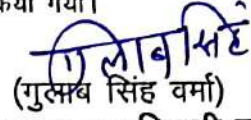 किया गया।
गुलाब सिंह
(गुलाब सिंह वर्मा)